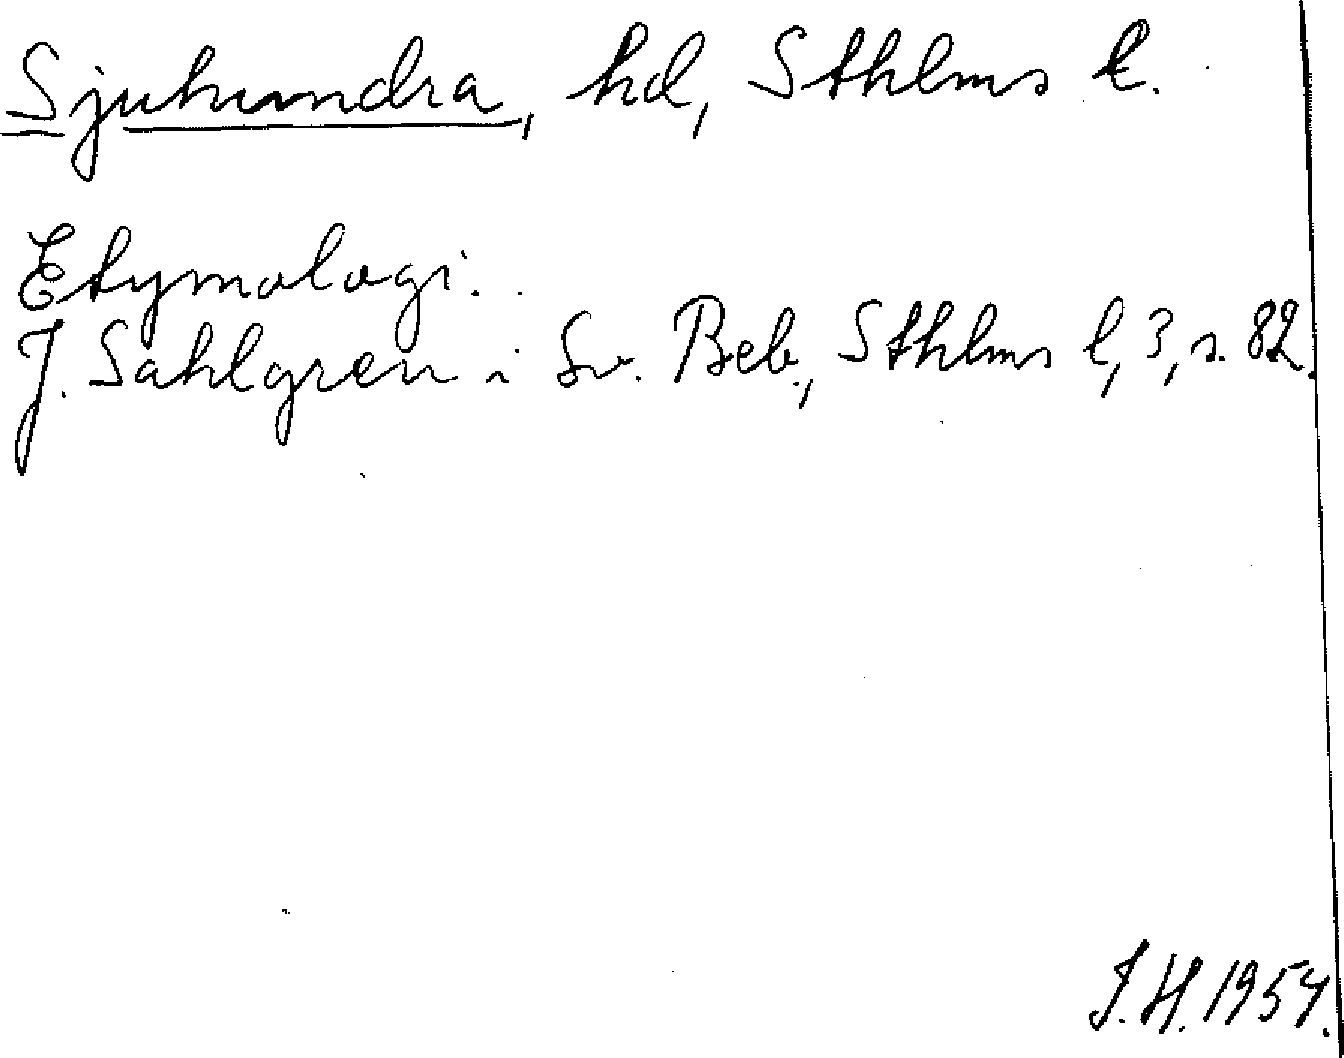 Sjuhundra, hd, Sthlms l.
Etymologi.
J. Sahlgren i Sv. Beb., Sthlms l, 3, s. 82.
J.H. 1954.